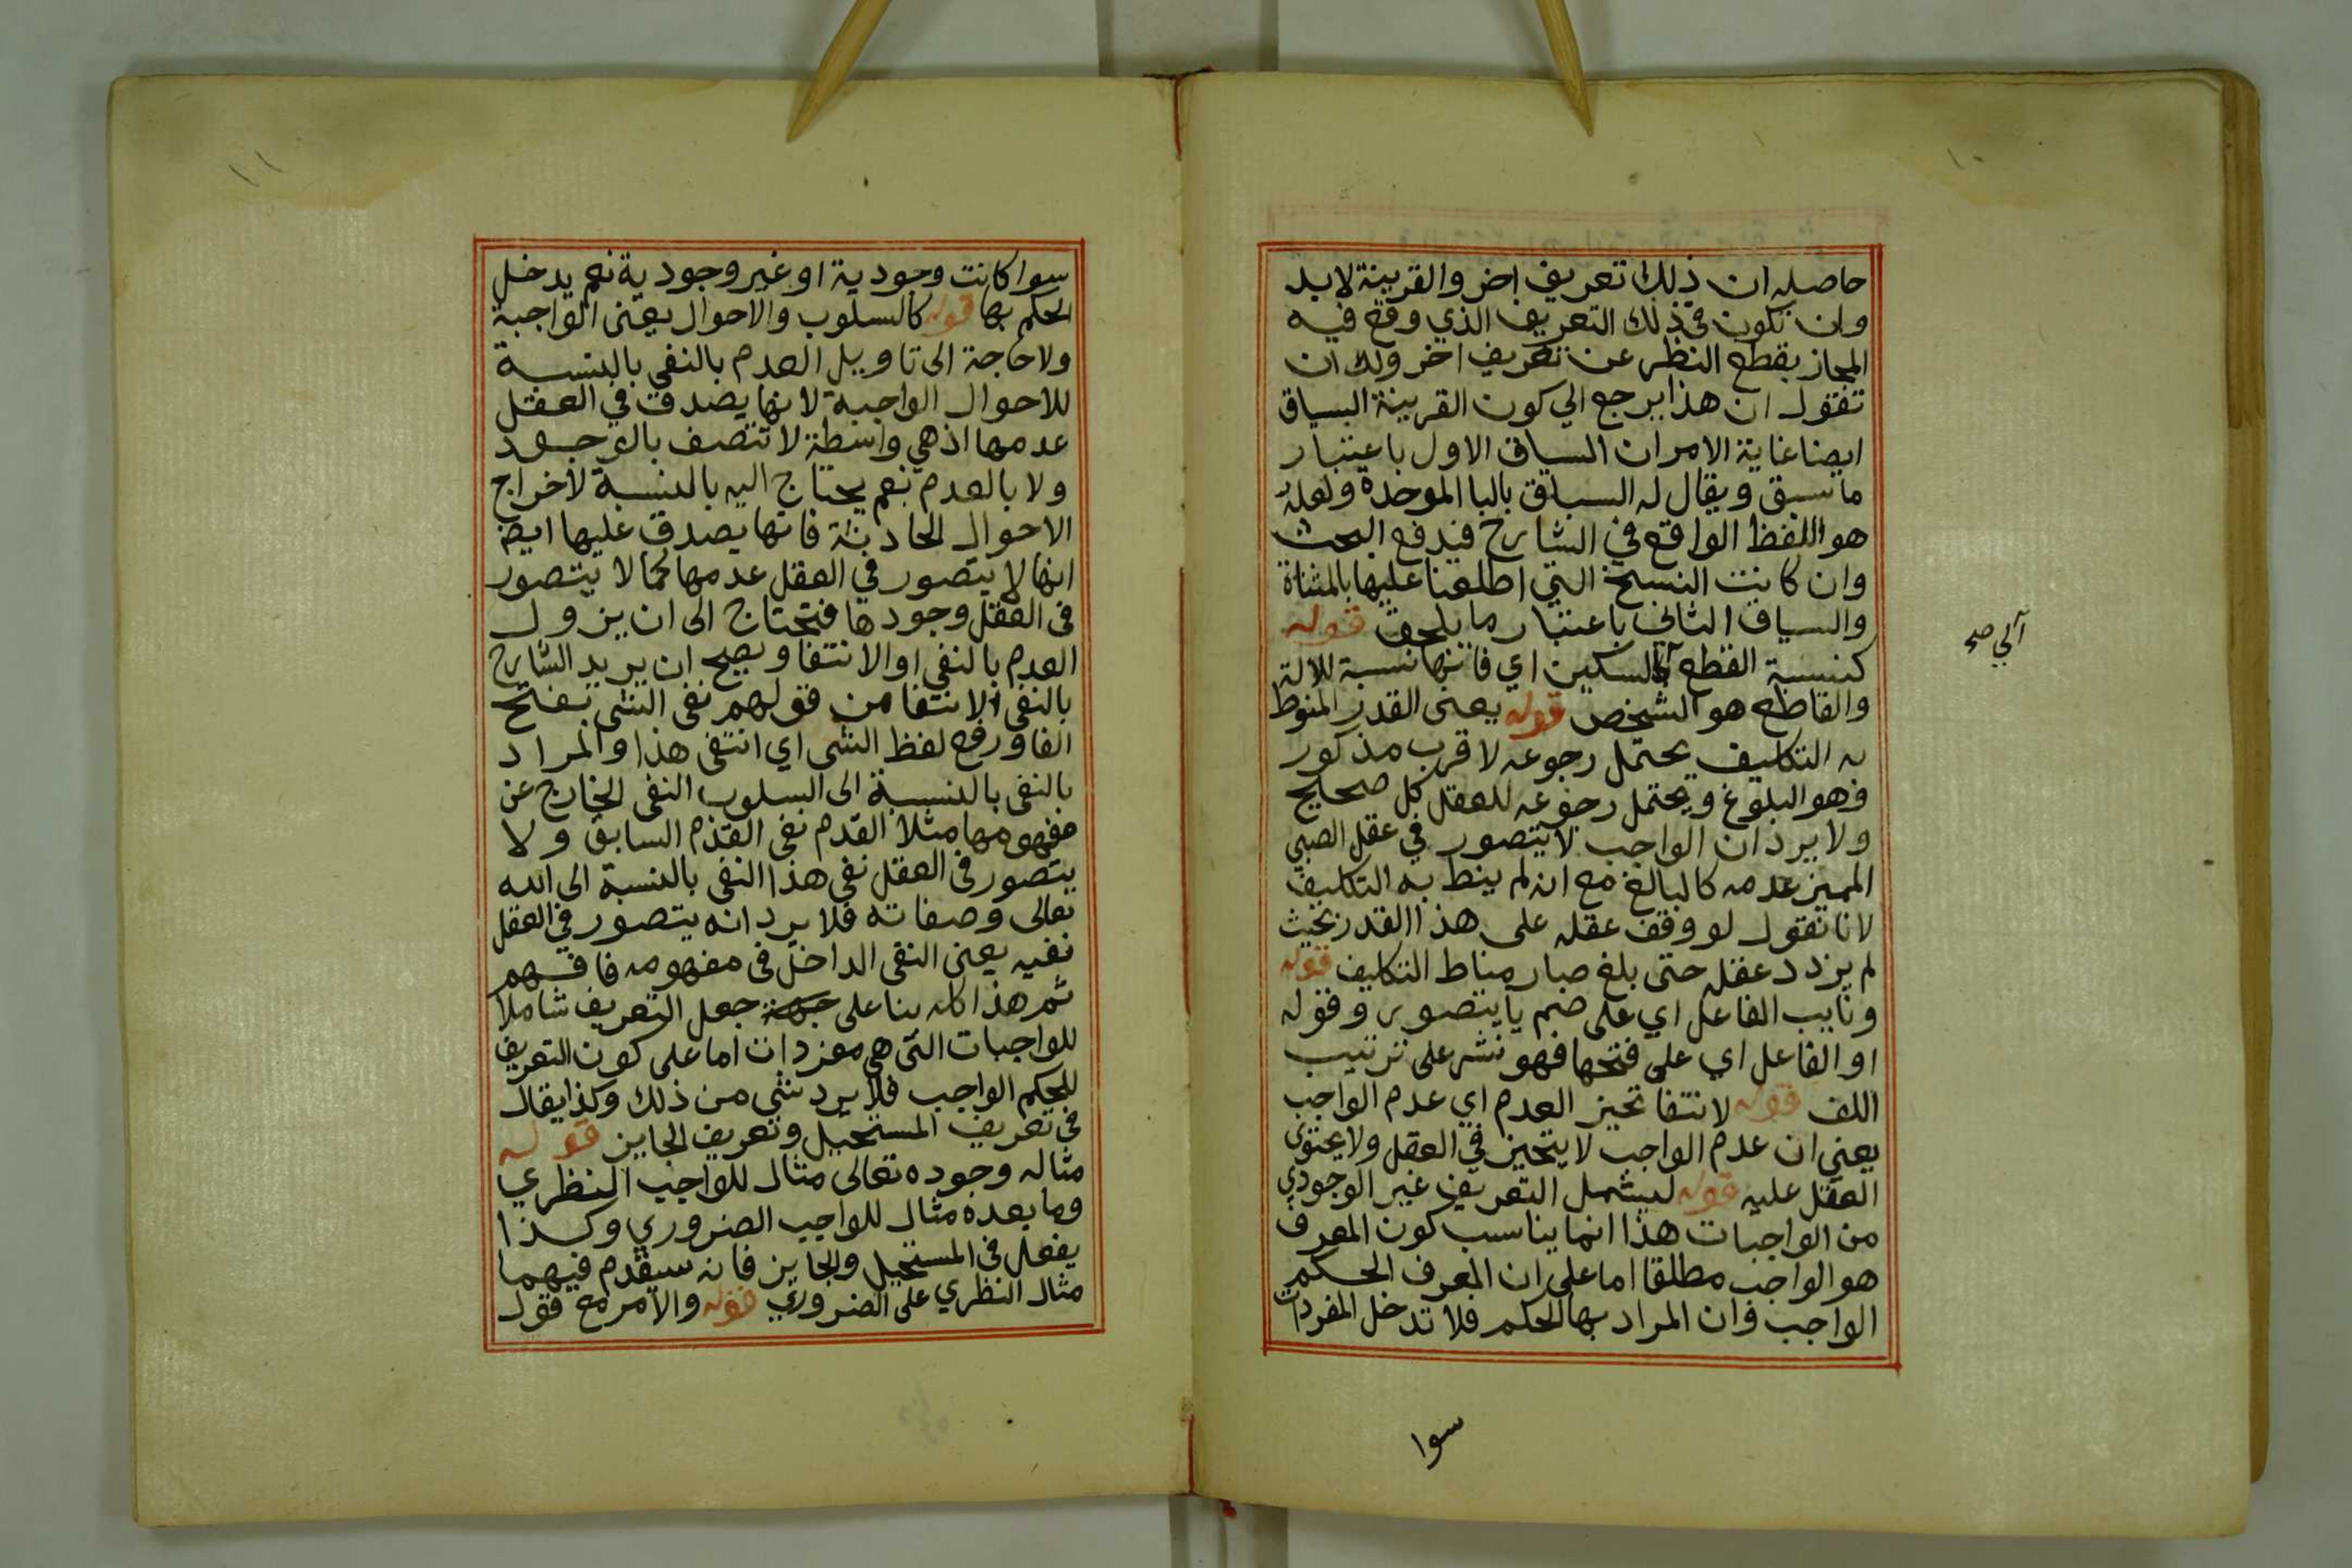 ١٠
حاصله ان ذلك تعريف اخر والقرينة لابد
وان تكون في ذلك التعريف الذي وقع فيه
المجاز بقطع النظر عن تعريف اخر ولك ان
تقول ان هذا يرجع الي كون القرينة السياق
ايضا غاية الامر ان السياق الاول باعتبار
ما سبق ويقال له السباق بالبا الموحدة ولعله
هو اللفظ الواقع في الشارح فيدفع البحث
وان كانت النسخ التي اطلعنا عليها بالمثناة
والسياق الثاني باعتبار ما يلحق قوله
كنسبة القطع للسكين اي فانها نسبة للالة
آلي صح
والقاطع هو الشخص قوله يعني القدر المنوط
به التكليف يحتمل رجوعه لاقرب مذكور
وهو البلوغ ويحتمل رجوعه للعقل كل صحيح
ولا يرد ان الواجب لا يتصور في عقل الصبي
المميز عدمه كالبالغ مع انه لم ينط به التكليف
لانا نقول لو وقف عقله على هذا القدر بحيث
لم يزدد عقله حتى بلغ صار مناط التكليف قوله
ونايب الفاعل اي على ضم يا يتصور وقوله
او الفاعل اي على فتحها فهو نشر على ترتيب
اللف قوله لانتفا تحيز العدم اي عدم الواجب
يعني ان عدم الواجب لا يتحيز في العقل ولا يحتوي
العقل عليه قوله ليشمل التعريف غير الوجودي
من الواجبات هذا انما يناسب كون المعرف
هو الواجب مطلقا اما على ان المعرف الحكم
الواجب وان المراد بها الحكم فلا تدخل المفردات
سوا
١١
سوا كانت وجودية او غير وجودية نعم يدخل
الحكم بها قوله كالسلوب والاحوال يعني الواجبة
ولا حاجة الى تاويل العدم بالنفي بالنسبة
للاحوال الواجبة لانها يصدق في العقل
عدمها اذ هي واسطة لا تتصف بالوجود
ولا بالعدم نعم يحتاج اليه بالنسبة لاخراج
الاحوال الحادثة فانها يصدق عليها ايضا
انها لا يتصور في العقل عدمها كما لا يتصور
في العقل وجودها فتحتاج الى ان يزول
العدم بالنفي او الانتفا ويصح ان يريد الشارح
بالنفي الانتفا من قولهم نفى الشي بفتح
الفا ورفع لفظ الشي اي انتفى هذا والمراد
بالنفي بالنسبة الى السلوب النفي الخارج عن
مفهومها مثلا القدم نفي القدم السابق ولا
يتصور في العقل نفي هذا النفي بالنسبة الى الله
تعالى وصفاته فلا يرد انه يتصور في العقل
نفيه يعني النفي الداخل في مفهومه فافهم
ثم هذا كله بنا على جهة جعل التعريف شاملا
للواجبات التي هي مفردات اما على كون التعريف
للحكم الواجب فلا يرد شي من ذلك وكذا يقال
في تعريف المستحيل وتعريف الجايز قوله
مثاله وجوده تعالى مثال للواجب النظري
وما بعده مثال للواجب الضروري وكذا
يفعل في المستحيل والجايز فانه سيقدم فيهما
مثال النظري على الضروري قوله والامر مع فقول